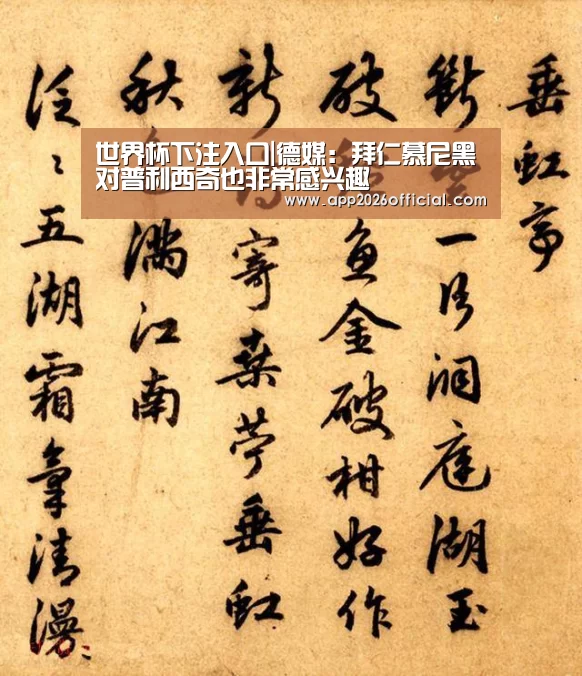 垂虹亭
斷一片洞庭湖玉
破魚金破柑好作
新寄桑苧垂虹
秋滿江南
泛〻五湖霜氣清漫〻
世界杯下注入口|德媒：拜仁慕尼黑
对普利西奇也非常感兴趣
www.app2026official.com